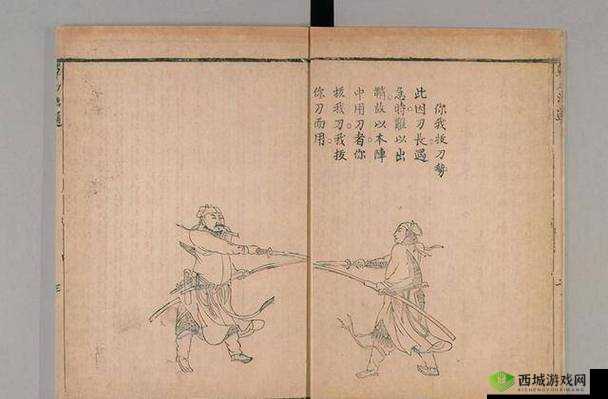 你我拔刀勢
此因刀長遇
急時難以出
鞘故以本陣
中用刀者你
拔我刀我拔
你刀而用
西城游戏网